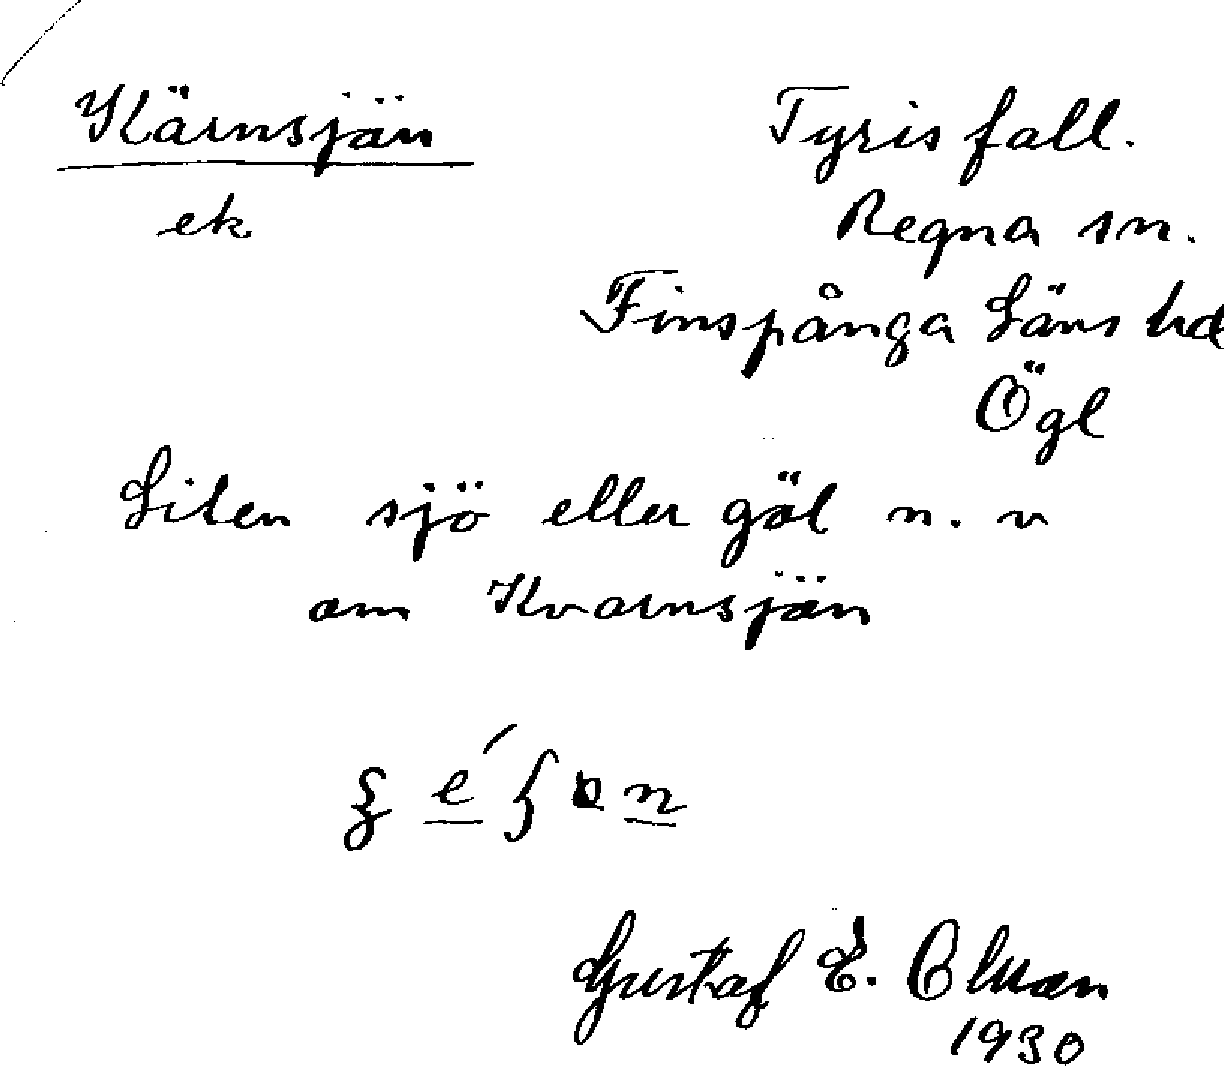 Kärnsjön
ek
Tyrisfall.
Regna sn.
Finspånga läns hd
Ögl
Liten sjö eller göl n. v
om Kvarnsjön
Gustaf E.
1930